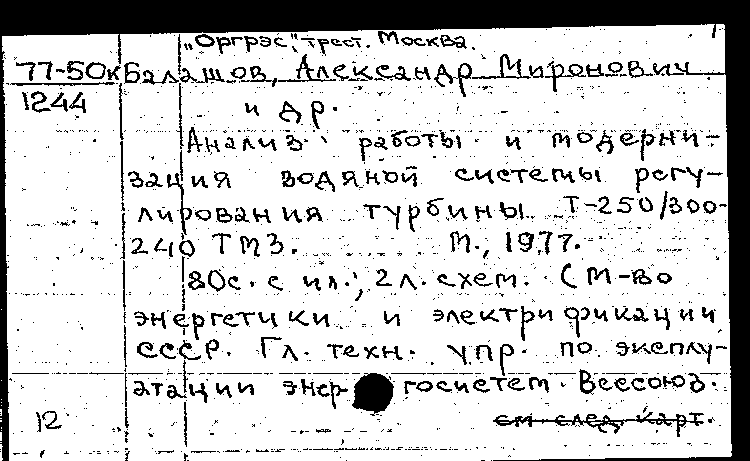 „Оргрэс", трест. Москва.
77-50к Балашов, Александр Миронович
1244 и др.
Анализ работы и модерни-
зация водяной системы регу-
лирования турбины Т-250/300-
240 ТМЗ. М., 1977.
80с. с ил.; 2л. схем. (М-во
энергетики и электрификации
СССР. Гл. техн. упр. по эксплу-
атации энергосистем. Всесоюз.
12 см. след. карт.